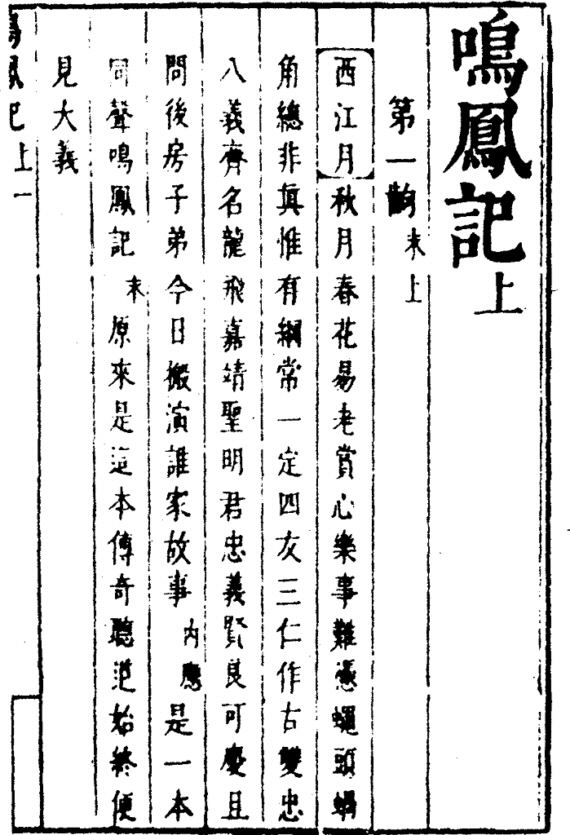 鳴鳳記上
第一齣末上
西江月秋月春花易老賞心樂事難憑蠅頭蝸
角總非眞惟有綱常一定四友三仁作古雙忠
八義齊名龍飛嘉靖聖明君忠義賢良可慶且
問後房子弟今日搬演誰家故事內應是一本
同聲鳴鳳記末原來是這本傳奇聽道始終便
見大義
鳴鳳記上一